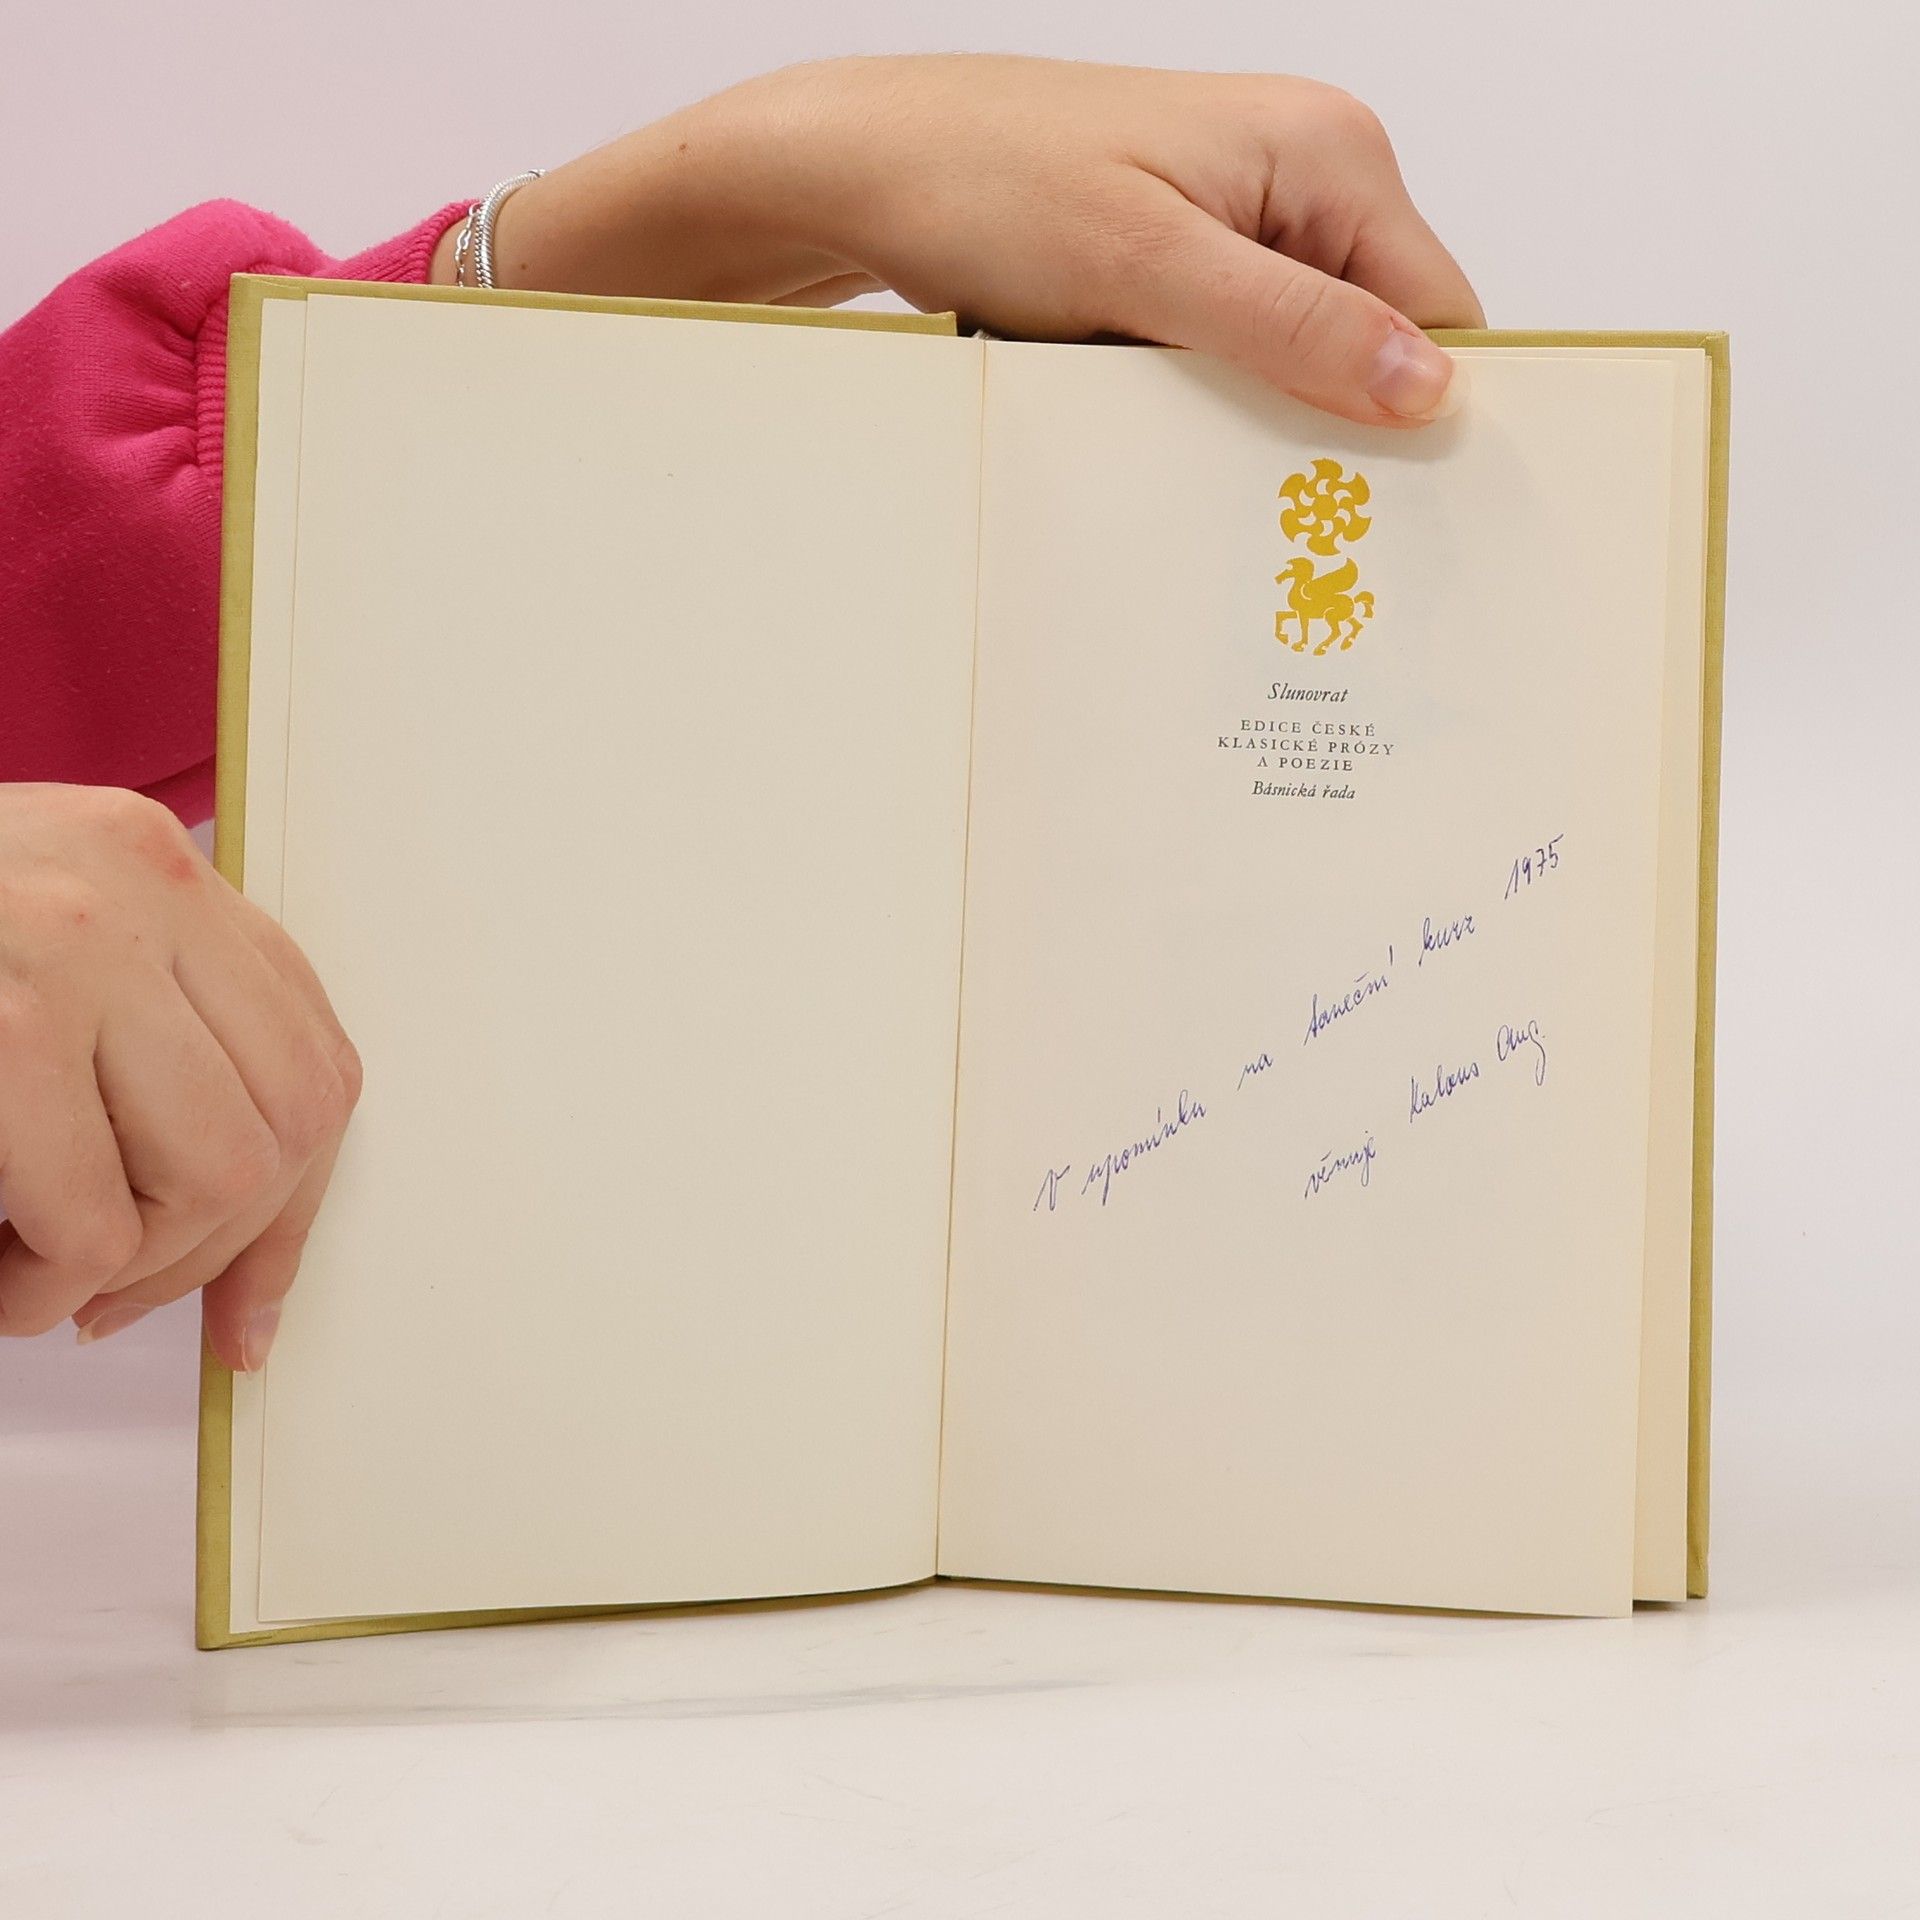 Slunovrat
EDICE ČESKÉ
KLASICKÉ PRÓZY
A POEZIE
Básnická řada
V upomínku na taneční kurz 1975
věnuje Kalous Aug.